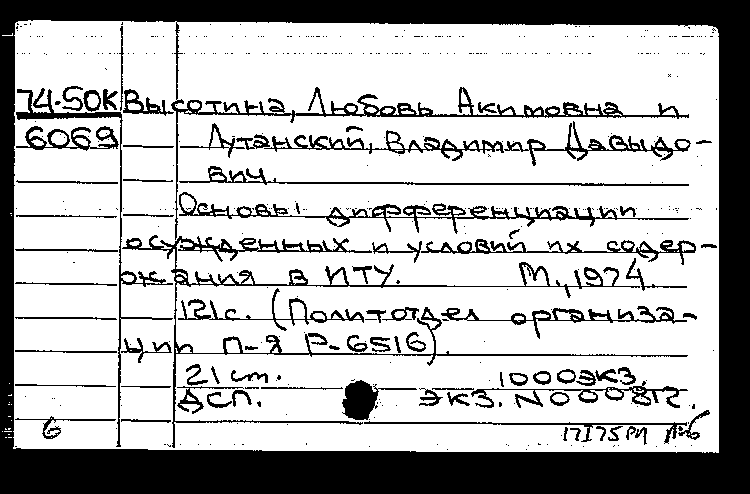 74-50К Высотина, Любовь Акимовна и
6069 Лутанский, Владимир Давыдо-
вич.
Основы дифференциации
осужденных и условий их содер-
жания в ИТУ. М., 1974.
121с. (Политотдел организа-
ции п-я Р-6516).
21 см. 1000экз.
ДСП. экз. N000812.
6 17I75РП